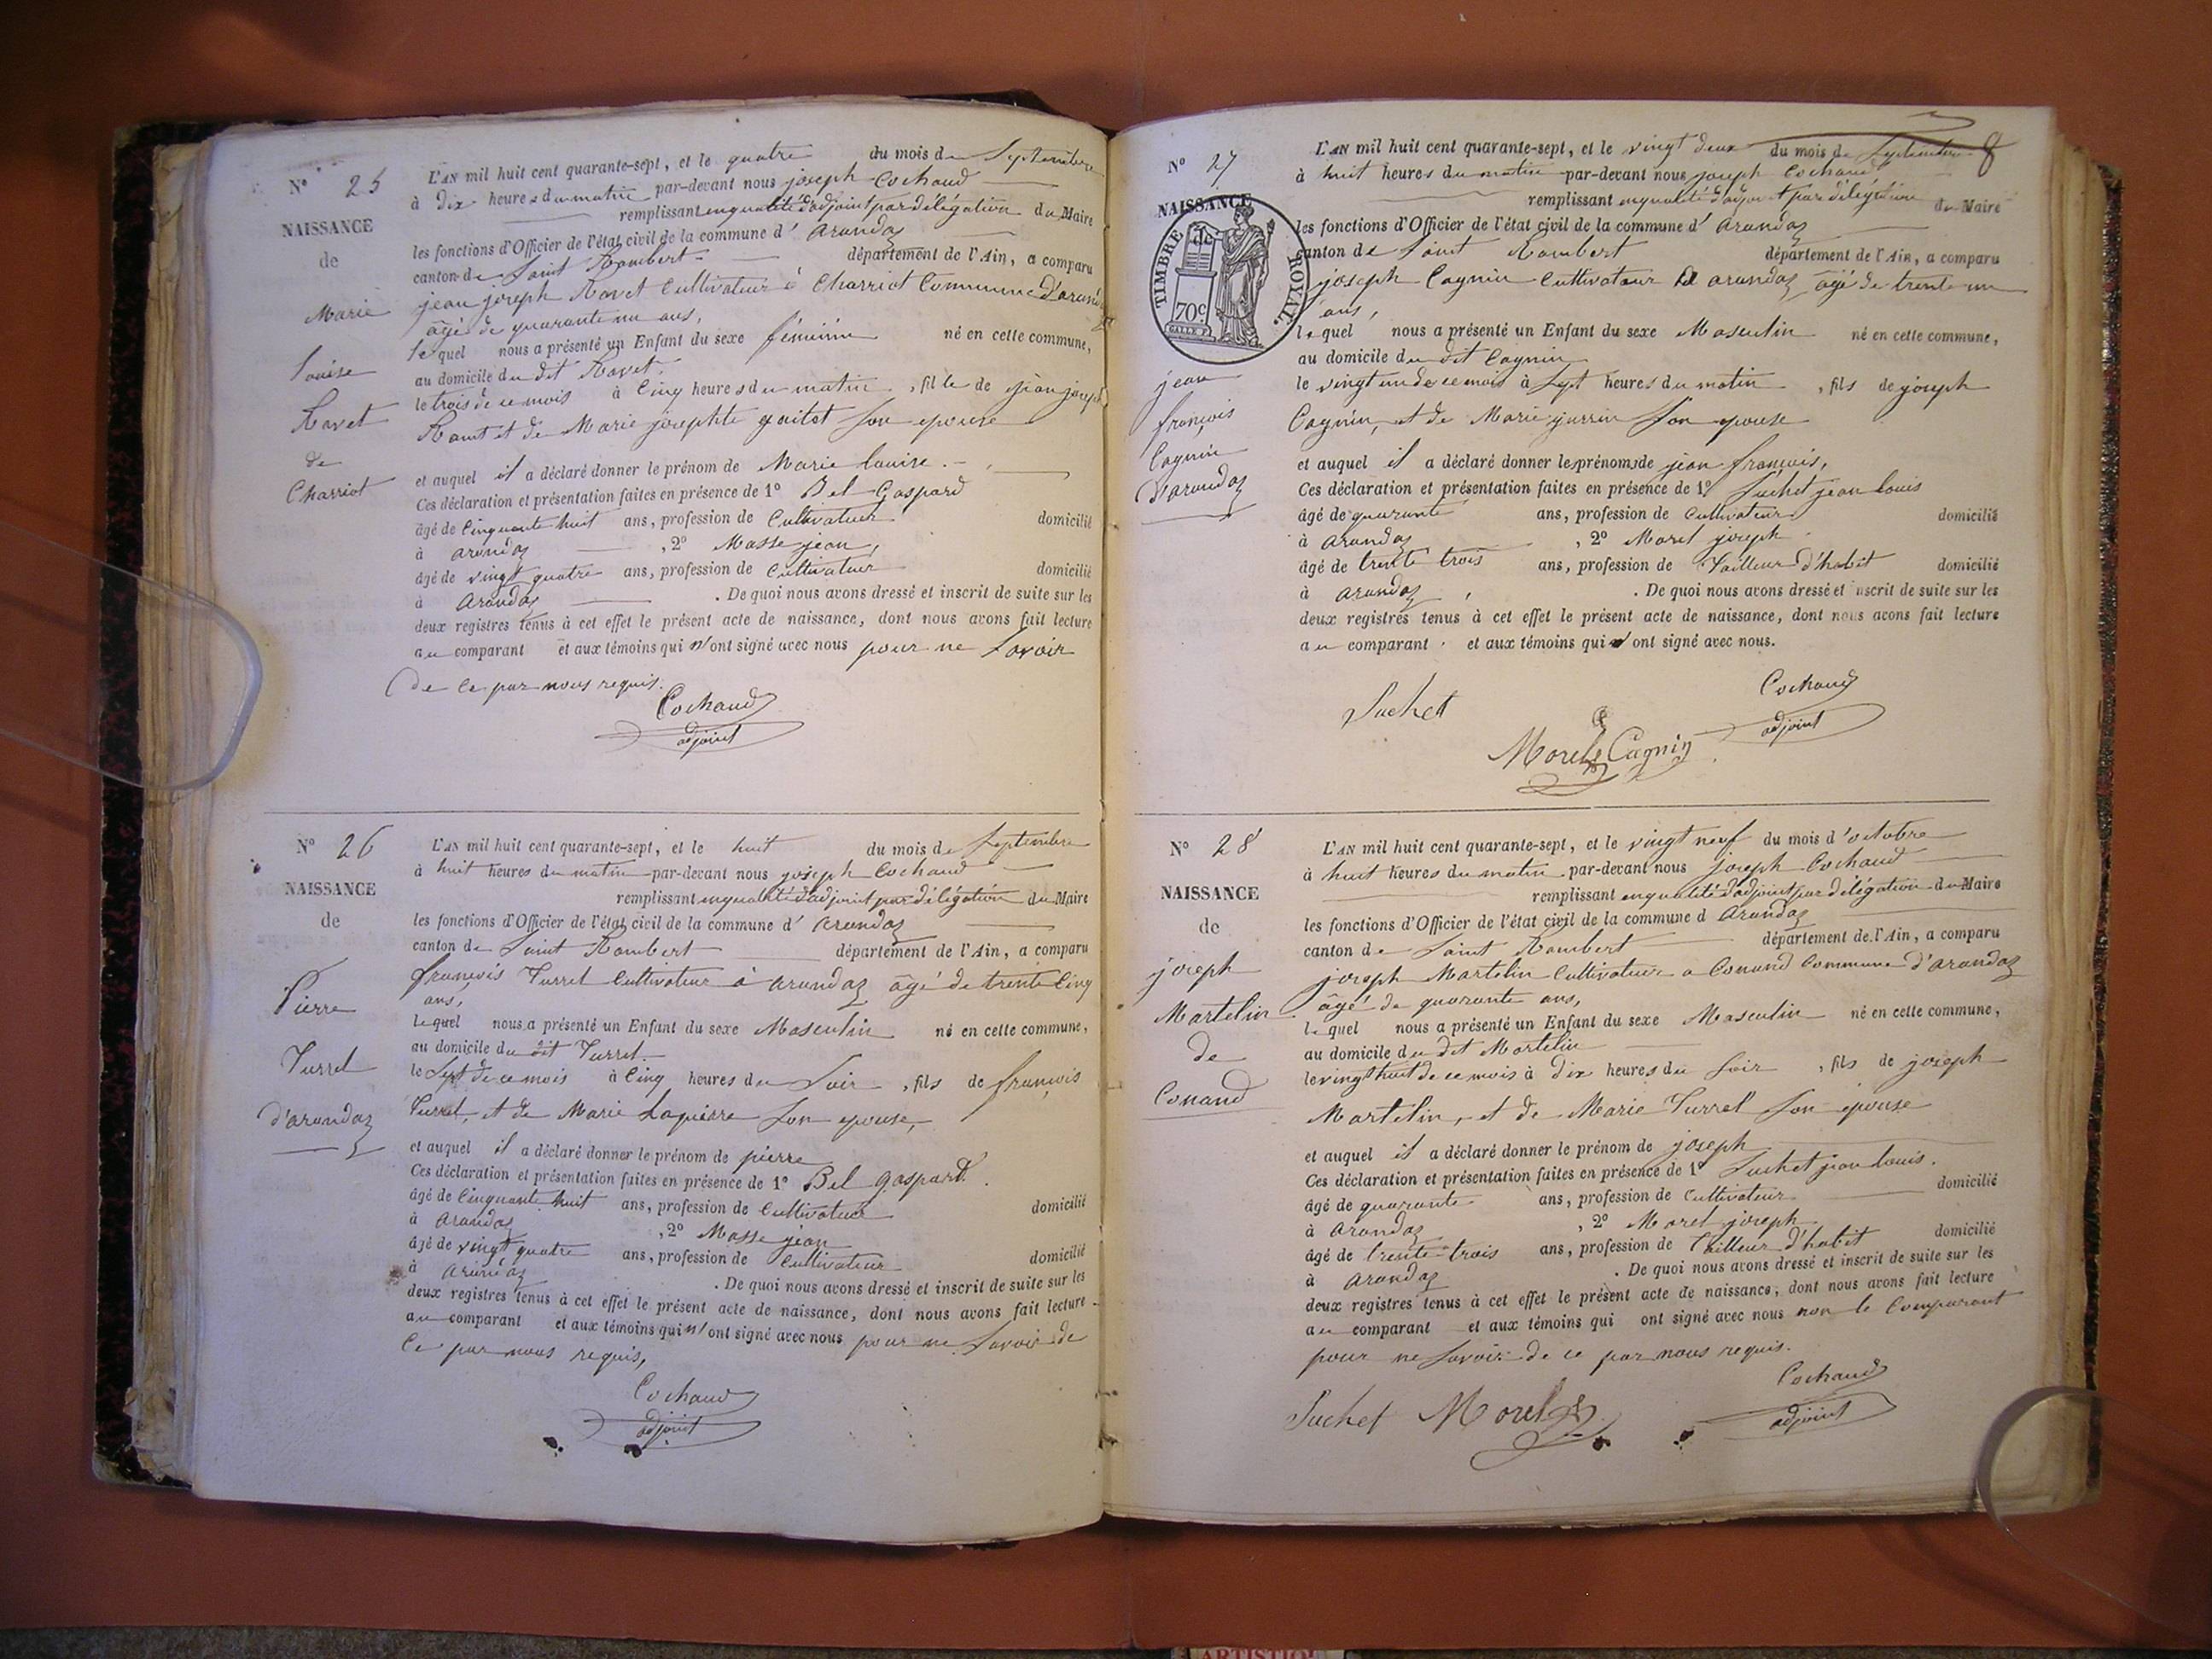 N° 25
NAISSANCE
de
Marie
Louise
Ravet
de
Charriot
L'AN mil huit cent quarante-sept, et le quatre du mois de Septembre
à dix heures du matin par-devant nous joseph Cochaud
remplissant en qualité d'adjoint par délégation du Maire
les fonctions d'Officier de l'état civil de la commune d' arandaz
canton de Saint Rambert département de l'Ain, a comparu
jean joseph Ravet Cultivateur à Charriot Commune d'arandaz
âgé de quarante un ans,
lequel nous a présenté un Enfant du sexe féminin né en cette commune,
au domicile du dit Ravet.
le trois de ce mois à Cinq heures du matin, fille de jean joseph
Ravet et de Marie josephte gaitet son epouse
et auquel il a déclaré donner le prénom de Marie Louise.
Ces déclaration et présentation faites en présence de 1° Bel Gaspard
âgé de Cinquante huit ans, profession de Cultivateur domicilié
à arandaz, 2° Masse jean,
âgé de vingt quatre ans, profession de Cultivateur domicilié
à arandaz. De quoi nous avons dressé et inscrit de suite sur les
deux registres tenus à cet effet le présent acte de naissance, dont nous avons fait lecture
au comparant et aux témoins qui n'ont signé avec nous pour ne Savoir
de ce par nous requis.
Cochaud
adjoint
N° 26
NAISSANCE
de
Pierre
Turrel
d'arandaz
L'AN mil huit cent quarante-sept, et le huit du mois de Septembre
à huit heures du matin par-devant nous joseph Cochaud
remplissant en qualité d'adjoint par délégation du Maire
les fonctions d'Officier de l'état civil de la commune d' arandaz
canton de Saint Rambert département de l'Ain, a comparu
françois Turrel Cultivateur à arandaz âgé de trente Cinq
ans,
lequel nous a présenté un Enfant du sexe Masculin né en cette commune,
au domicile du dit Turrel.
le Sept de ce mois à Cinq heures du Soir, fils de françois
Turrel, et de Marie Lapierre Son epouse,
et auquel il a déclaré donner le prénom de pierre
Ces déclaration et présentation faites en présence de 1° Bel gaspard.
âgé de Cinquante huit ans, profession de Cultivateur domicilié
à arandaz, 2° Masse jean
âgé de vingt quatre ans, profession de Cultivateur domicilié
à arandaz. De quoi nous avons dressé et inscrit de suite sur les
deux registres tenus à cet effet le présent acte de naissance, dont nous avons fait lecture
au comparant et aux témoins qui n'ont signé avec nous pour ne Savoir de
Ce par nous requis,
Cochaud
adjoint
8
N° 27
NAISSANCE
de
TIMBRE ROYAL
70c
jean
françois
Cagnin
d'arandaz
L'AN mil huit cent quarante-sept, et le vingt deux du mois de Septembre
à huit heures du matin par-devant nous joseph Cochaud
remplissant en qualité d'adjoint par délégation du Maire
les fonctions d'Officier de l'état civil de la commune d' arandaz
canton de Saint Rambert département de l'Ain, a comparu
joseph Cagnin Cultivateur à arandaz âgé de trente un
ans,
lequel nous a présenté un Enfant du sexe Masculin né en cette commune,
au domicile du dit Cagnin
le vingt un de ce mois à Sept heures du matin, fils de joseph
Cagnin, et de Marie jurrin Son epouse
et auquel il a déclaré donner les prénoms de jean françois,
Ces déclaration et présentation faites en présence de 1° Suchet jean Louis
âgé de quarante ans, profession de Cultivateur domicilié
à arandaz, 2° Morel joseph
âgé de trente trois ans, profession de Tailleur d'habit domicilié
à arandaz, . De quoi nous avons dressé et inscrit de suite sur les
deux registres tenus à cet effet le présent acte de naissance, dont nous avons fait lecture
au comparant et aux témoins qui ont signé avec nous.
Cochaud
adjoint
Suchet
Morel Cagnin
N° 28
NAISSANCE
de
joseph
Martelin
de
Conand
L'AN mil huit cent quarante-sept, et le vingt neuf du mois d'octobre
à huit heures du matin par-devant nous joseph Cochaud
remplissant en qualité d'adjoint par délégation du Maire
les fonctions d'Officier de l'état civil de la commune d arandaz
canton de Saint Rambert département de l'Ain, a comparu
joseph Martelin Cultivateur a Conand Commune d'arandaz
âgé de quarante ans,
lequel nous a présenté un Enfant du sexe Masculin né en cette commune,
au domicile du dit Martelin
le vingt huit de ce mois à dix heures du Soir, fils de joseph
Martelin, et de Marie Turrel Son epouse
et auquel il a déclaré donner le prénom de joseph
Ces déclaration et présentation faites en présence de 1° Suchet jean Louis.
âgé de quarante ans, profession de Cultivateur domicilié
à arandaz, 2° Morel joseph
âgé de trente-trois ans, profession de Tailleur d'habit domicilié
à arandaz. De quoi nous avons dressé et inscrit de suite sur les
deux registres tenus à cet effet le présent acte de naissance, dont nous avons fait lecture
au comparant et aux témoins qui ont signé avec nous non le Comparant
pour ne Savoir de ce par nous requis.
Cochaud
adjoint
Suchet Morel